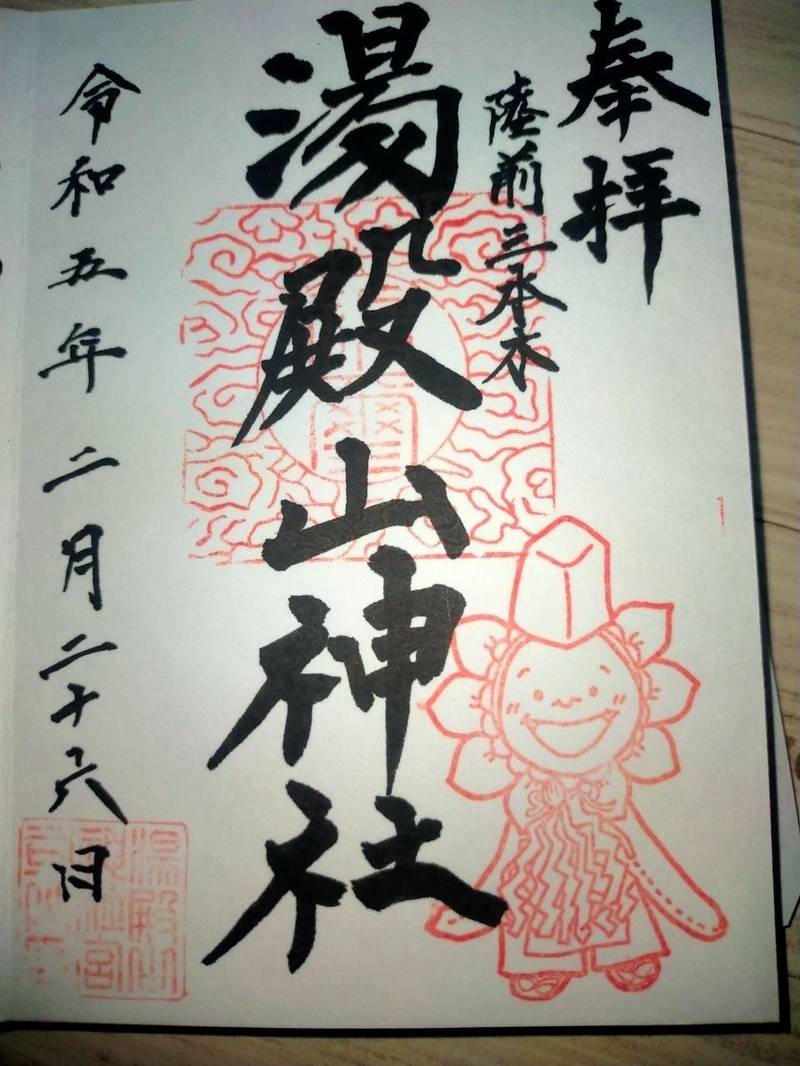 奉拝
陸前三本木
湯殿山神社
令和五年二月二十六日